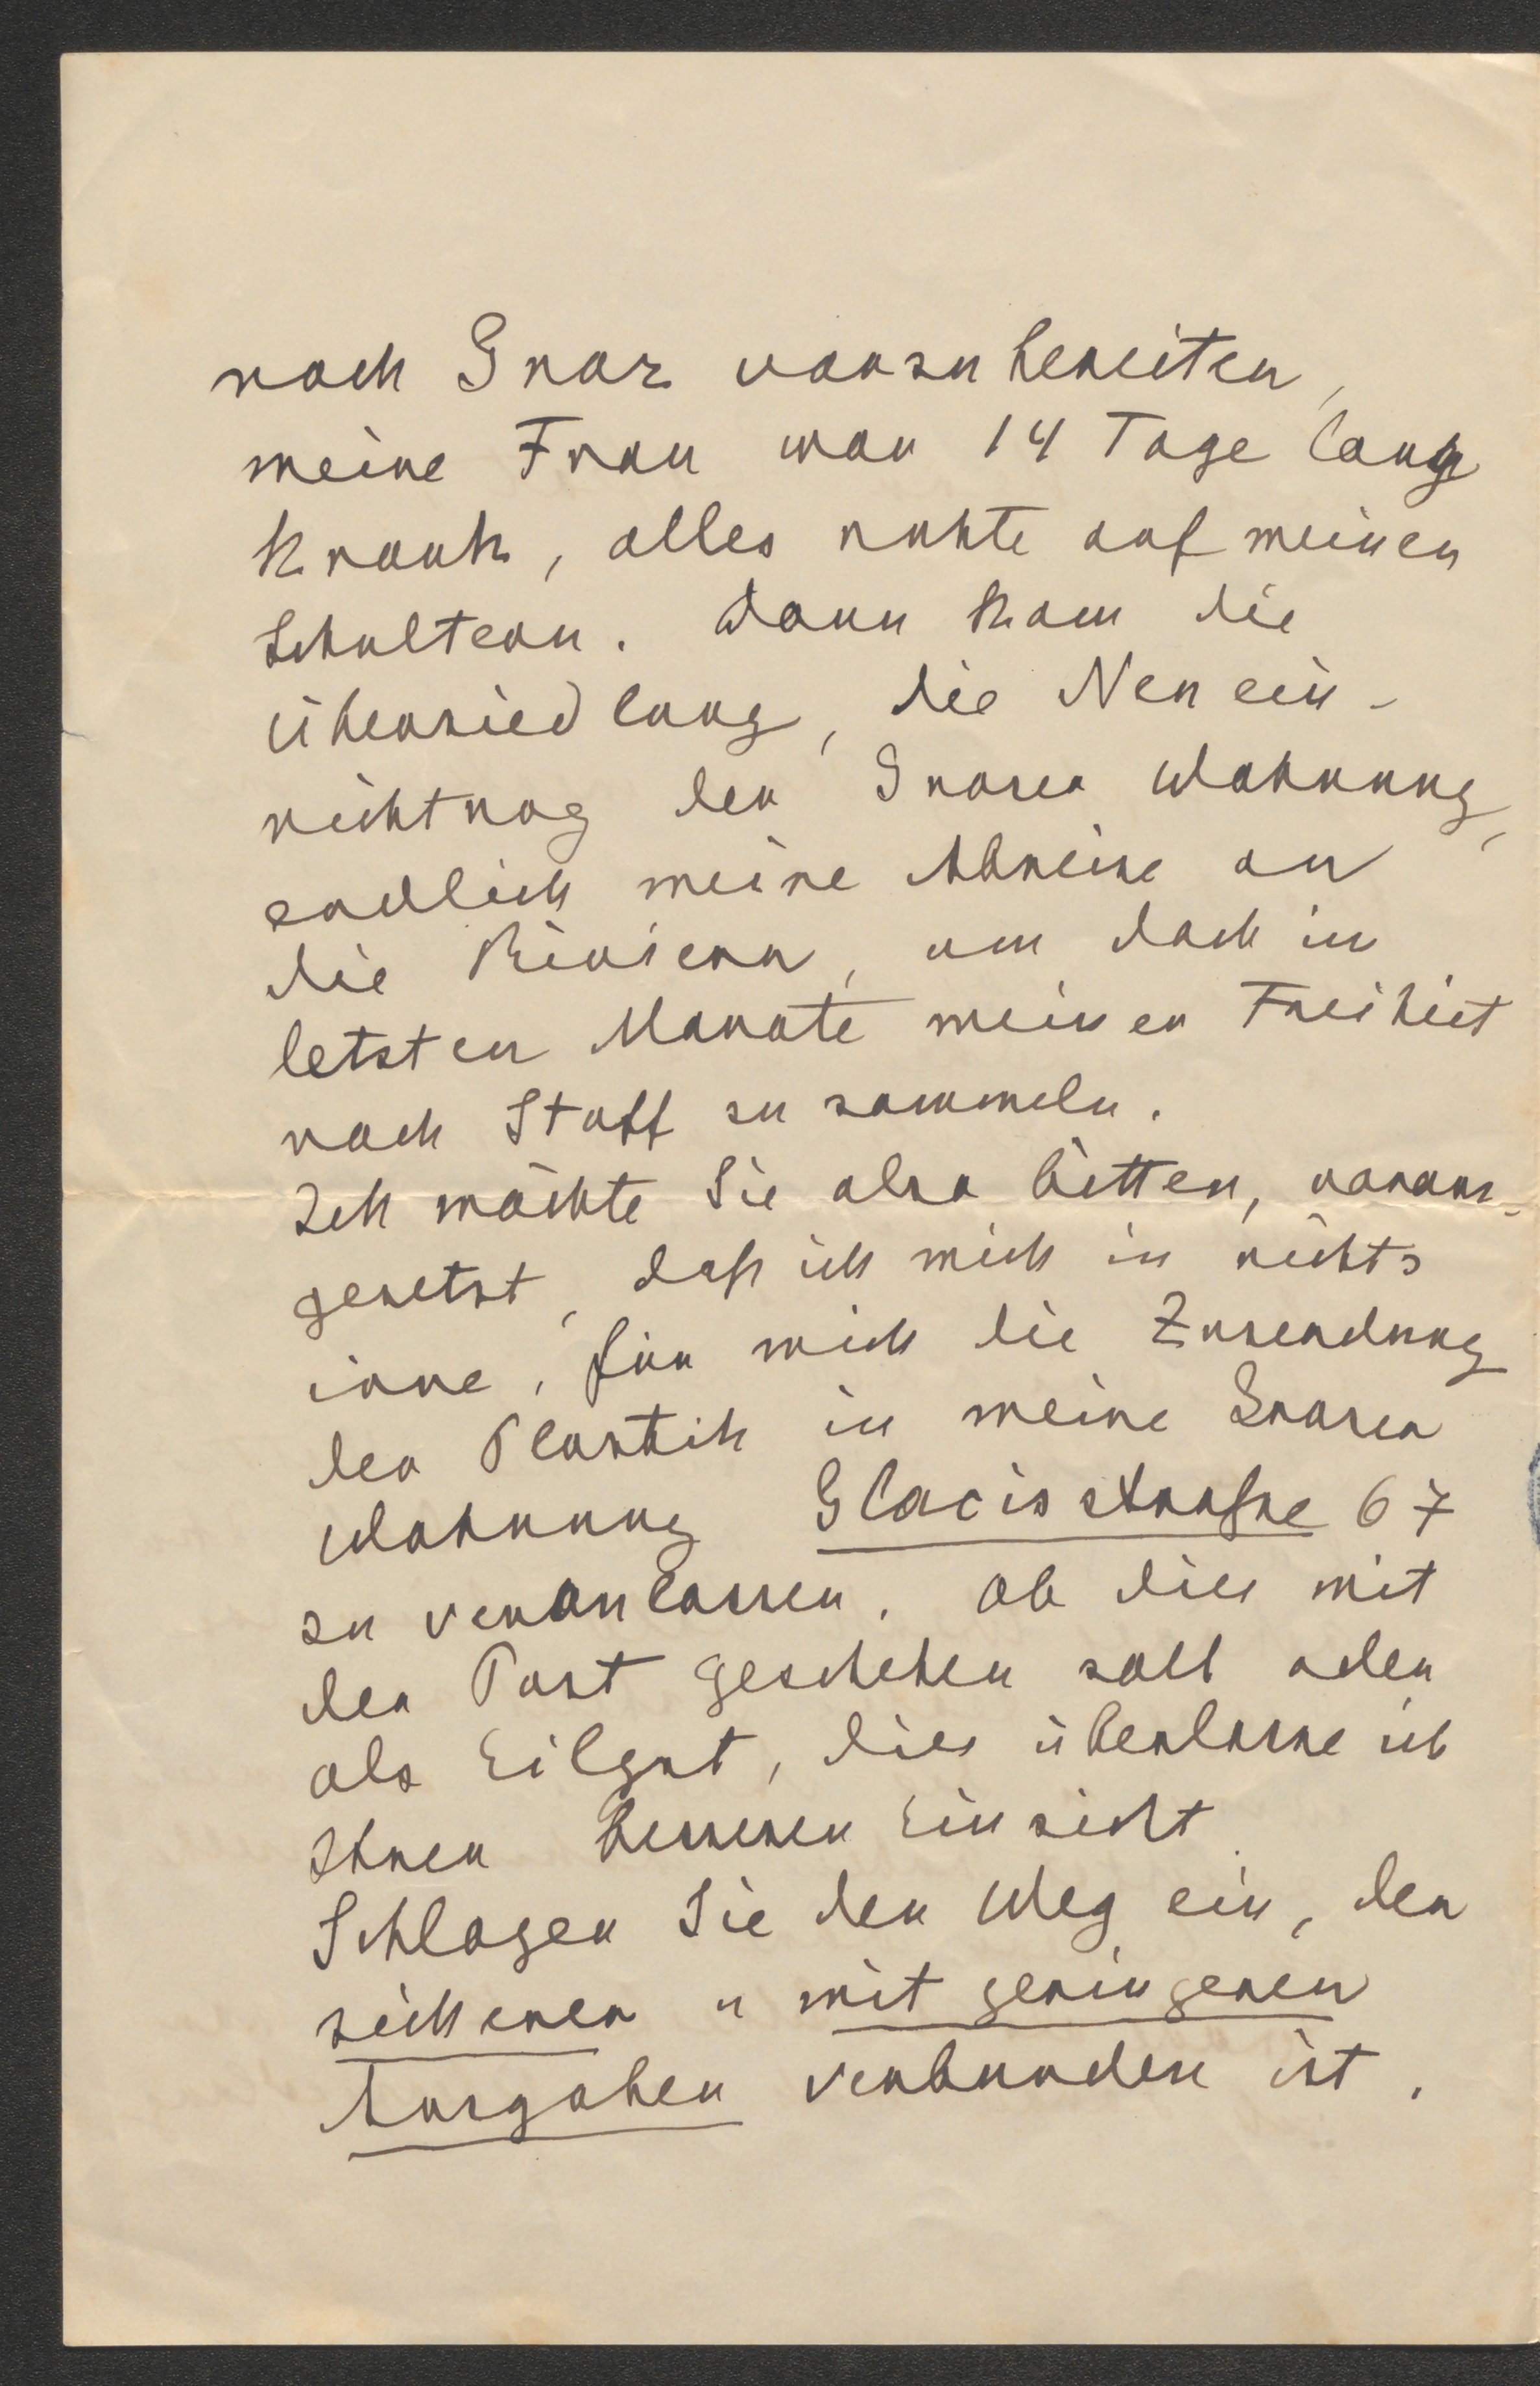 nach Graz vorzubereiten,
meine Frau war 14 Tage lang
krank, alles ruhte auf meinen
Schultern. Dann kam die
Übersiedlung, die Neuein-
richtung der Grazer Wohnung,
endlich meine Abreise an
die Riviera, um doch im
letzten Monate meiner Freiheit
noch Stoff zu sammeln.
Ich möchte Sie also bitten, voraus-
gesetzt, daß ich mich in nichts
irre, für mich die Zusendung
der Plastik in meine Grazer
Wohnung Glacisstraße 67
zu veranlassen. Ob dies mit
der Post geschehen soll oder
als Eilgut, dies überlasse ich
Ihrer besseren Einsicht.
Schlagen Sie den Weg ein, der
sicherer u mit geringeren
Ausgaben verbunden ist.